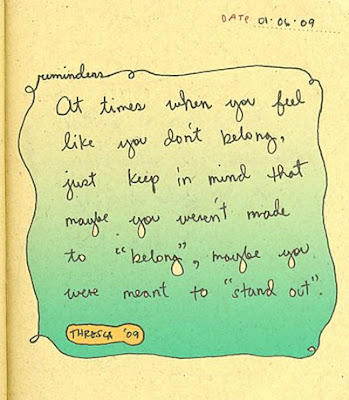 DATE 01.06.09
reminders
At times when you feel
like you don't belong,
just keep in mind that
maybe you weren't made
to "belong", maybe you
were meant to "stand out".
THRESCA '09